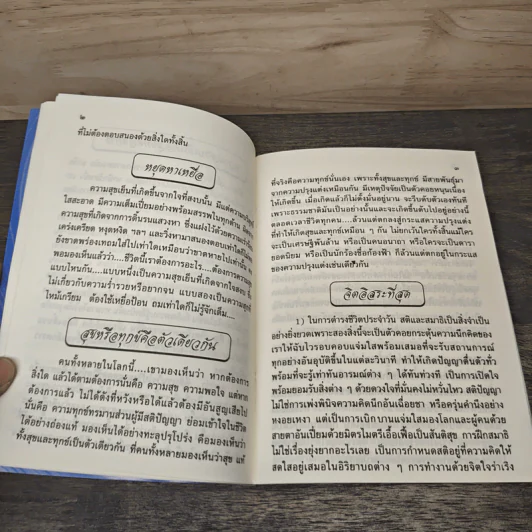 ๒
ที่ไม่ต้องตอบสนองด้วยสิ่งใดทั้งสิ้น
หยุดหาเหยื่อ
ความสุขเย็นที่เกิดขึ้นจากใจที่สงบนั้น มีแต่ความ
ใสสะอาด มีความเต็มเปี่ยมอย่างพร้อมสรรพในทุกด้าน
ความสุขที่เกิดจากการดิ้นรนแสวงหา ซึ่งแฝงไว้ด้วยความ
เคร่งเครียด หงุดหงิด ฯลฯ และวิ่งหามาสนองตอบเท่าใดก็ไม่
ยิ่งขาดพร่องเทถมใส่ไปเท่าใดเหมือนว่าขาดหายไปเท่านั้น
พอมองเห็นแล้วว่า....ชีวิตนี้เราต้องการอะไร....ต้องการความสุข
แบบไหนกัน....แบบหนึ่งเป็นความสุขเย็นที่เกิดจากใจสงบ
ไม่เกี่ยวกับความร่ำรวยหรือยากจน แบบสองเป็นความสุข
ไหม้เกรียม ต้องใช้เหยื่อป้อน ถมเท่าใดก็ไม่รู้จักเต็ม....
สุขหรือทุกข์คือตัวเดียวกัน
คนทั้งหลายในโลกนี้....เขามองเห็นว่า หากต้องการ
สิ่งใด แล้วได้ตามต้องการนั้นคือ ความสุข ความพอใจ แต่หาก
ต้องการแล้ว ไม่ได้ดังที่หวังหรือได้แล้วต้องมีอันสูญเสียไป
นั้นคือ ความทุกข์ทรมานส่วนผู้มีสติปัญญา ย่อมเข้าใจในชีวิต
ได้อย่างถ่องแท้ มองเห็นได้อย่างทะลุปรุโปร่ง คือมองเห็นว่า
ทั้งสุขและทุกข์เป็นตัวเดียวกัน ที่คนทั้งหลายมองเห็นว่าสุข แท้
๓
ที่จริงคือความทุกข์นั่นเอง เพราะทั้งสุขและทุกข์ มีสายพันธุ์มา
จากความปรุงแต่งเหมือนกัน มีเหตุปัจจัยเป็นตัวคอยหนุนเนื่อง
ให้เกิดขึ้น เมื่อเกิดแล้วก็ไม่ตั้งมั่นอยู่นาน จะรีบดับตัวเองทันที
เพราะธรรมชาติมันเป็นอย่างนั้นและจะเกิดขึ้นดับไปอยู่อย่างนี้
ตลอดเวลาชีวิตทุกคน....ล้วนแต่ตกลงสู่กระแสความปรุงแต่ง
ที่ทำให้เกิดสุขและทุกข์เหมือน ๆ กัน ไม่ยกเว้นใครทั้งสิ้นแม้ใคร
จะเป็นเศรษฐีพันล้าน หรือเป็นคนอนาถา หรือใครจะเป็นดารา
ยอดนิยม หรือเป็นนักร้องชื่อก้องฟ้า ก็ล้วนแต่ตกอยู่ในกระแส
ของความปรุงแต่งเช่นเดียวกัน
จิตอิสระที่สุด
1) ในการดำรงชีวิตประจำวัน สติและสมาธิเป็นสิ่งจำเป็น
อย่างยิ่งยวดเพราะสองสิ่งนี้จะเป็นตัวคอยกระตุ้นความนึกคิดของ
เราให้ฉับไวรอบคอบแจ่มใสพร้อมเสมอที่จะรับสถานการณ์
ทุกอย่างอันอุบัติขึ้นในแต่ละวินาที ทำให้เกิดปัญญาตื่นตัวทั่ว
พร้อมที่จะรู้เท่าทันอารมณ์ต่าง ๆ ได้ทันท่วงที เป็นการเปิดใจ
พร้อมยอมรับสิ่งต่าง ๆ ด้วยดวงใจที่มั่นคงไม่หวั่นไหว สติปัญญา
ไม่ใช่การเพ่งพินิจความคิดนึกอันเฉื่อยชา หรือครุ่นคำนึงอย่าง
หงอยเหงา แต่เป็นการเบิกบานแจ่มใสมองโลกและผู้คนด้วย
สายตาอันเปี่ยมด้วยมิตรไมตรีเอื้อเฟื้อเป็นสันติสุข การฝึกสมาธิ
ไม่ใช่เรื่องยุ่งยากอะไรเลย เป็นการกำหนดสติอยู่ที่ความคิดให้
สดใสอยู่เสมอในอิริยาบถต่าง ๆ การทำงานด้วยจิตใจร่าเริง